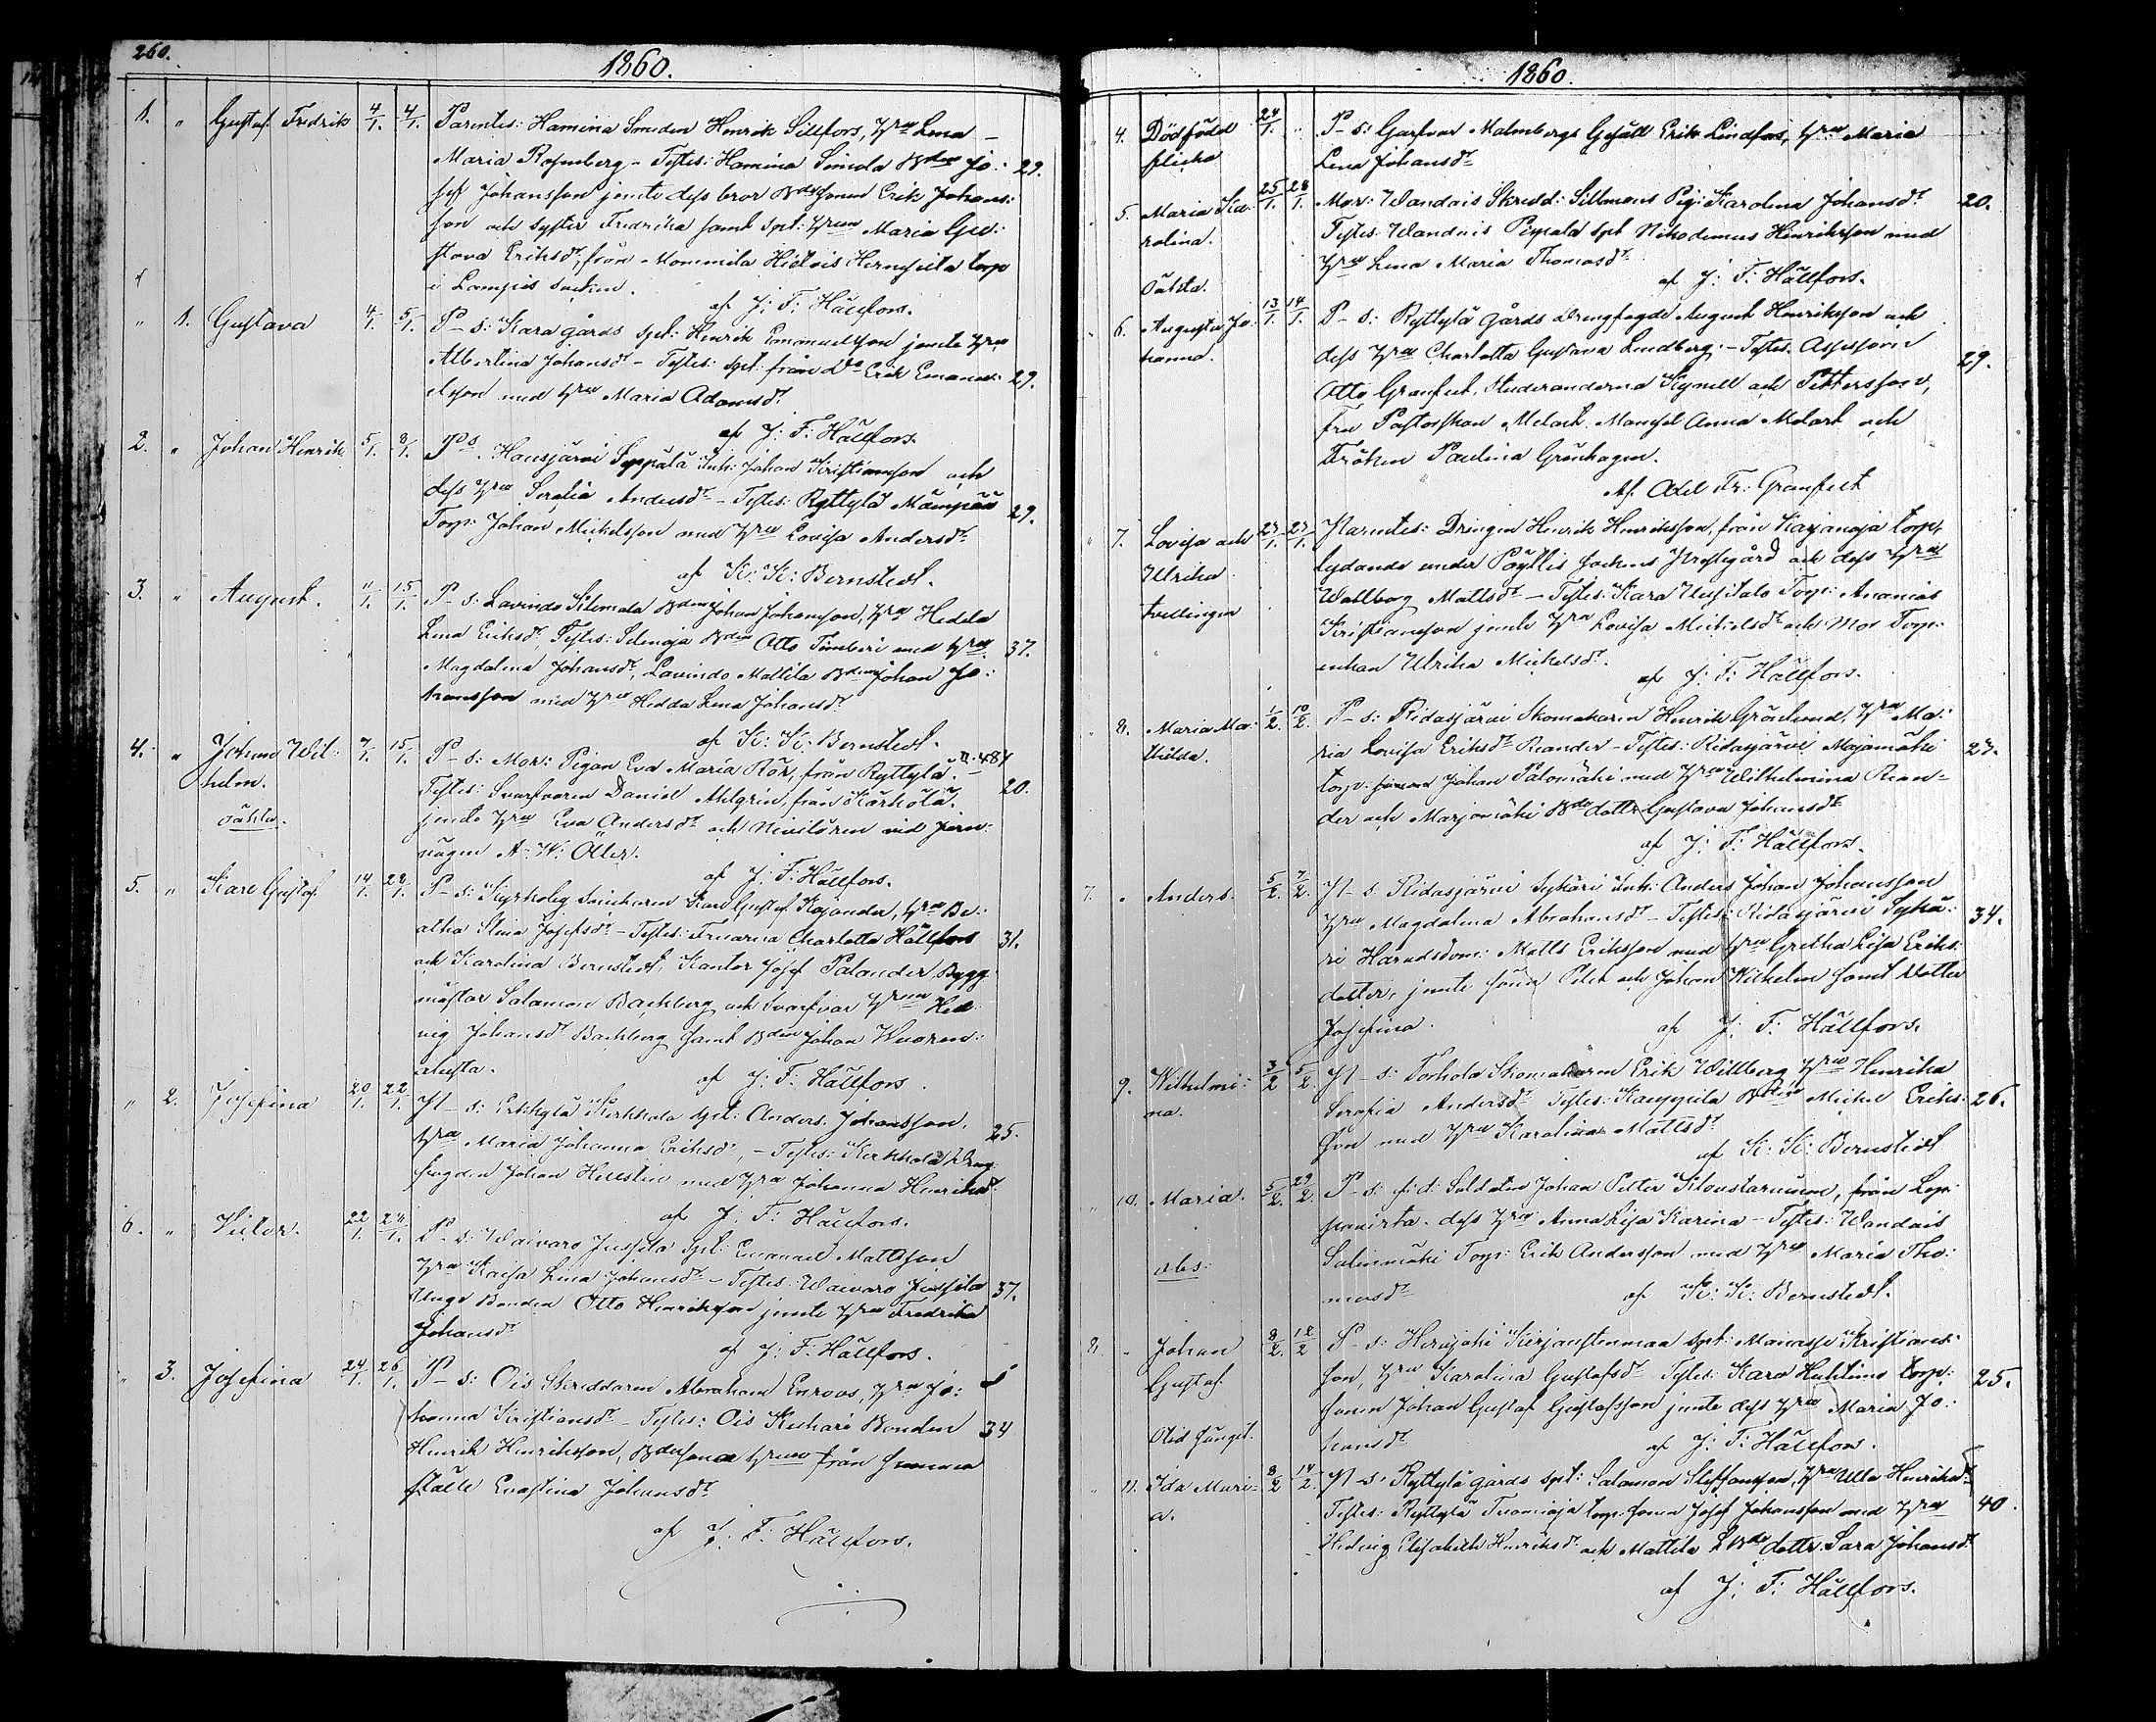 260.
1860.
1. " Gustaf Fredrik 4/1. 4/1. Parentes: Hamina Smeden Henrik Sillfors, Hru Lena
Maria Rosenberg - Testes: Hamina Simola Bden Jo: 29.
sef Johansson jemte dess bror Bdesonen Erik Johans:
son och syster Fredrika samt spt: Hrun Maria Gu:
stava Eriksdr, från Mommila Hietois torp
i Lampis socken.
af J: F: Hällfors.
" 1. Gustava 4/1. 5/1. P - s: Kara gårds spt: Henrik Emanuelsson jemte Hru
Albertina Johansdr - Testes: spt: från Do Erik Emanu: 29.
elsson med Hru Maria Adamsdr
af J: F: Hällfors.
2. " Johan Henrik 5/1. 8/1. P-s. Hausjärvi Seppälä Inh: Johan Kristiansson och
dess Hru Serafia Andersdr - Testes: Ryttylä Mämpää 29.
Torp: Johan Mickelsson med Hru Lovisa Andersdr
af K: K: Bernstedt.
3. " August. 11/1. 15/1. P - s: Lavindo Kilemala Bden Johan Johansson, Hru Hedda
Lena Eriksdr, Testes: Selenoja Bden Otto Timberi med Hru 37.
Magdalena Johansdr, Lavindo Mattila Bden Johan Jo:
hansson med Hru Hedda Lena Johansdr
af K: K: Bernstedt.
4. " Johan Wil: 7/1. 15/1. P - s: Mor: Pigan Eva Maria Rör, från Ryttylä.
helm. Testes: Svarfvaren Daniel Ahlgrén, från Karhola. 20.
oäkta. jemte Hru Eva Andersdr och Nivilören vid jern:
vägen A: W: Öller.
af J: F: Hällfors.
5. " Karl Gustaf 14/1. 28/1. P - s: Kyrkoby Snickaren Karl Gustaf Kajander, Hru Be:
atha Stina Josefsdr - Testes: Fruarna Charlotta Hällfors 31.
och Karolina Bernstedt, Kantor Josef Palander, Bygg:
mästar Salamon Bachberg och Svarfvar Hrun Hed:
vig Johansdr Bachberg samt Bden Johan Huoren:
alusta.
af J: F: Hällfors.
" 2. Josefina 20/1. 22/1. P - s: Erkkylä Kerkkola spt: Anders Johansson,
Hru Maria Johanna Eriksdr, - Testes: Kerkkola Dreng: 25.
fogden Johan Hellstén med Hru Johanna Henriksdr
af J: F: Hällfors.
6. " Victor. 22/1. 24/1. P - s: Waivaro Jussila spt: Emanuel Mattsson
Hru Kaisa Lena Johansdr - Testes: Waivaro Jussila 37.
Unge Bonden Otto Henriksson jemte Hru Fredrika
Johansdr
af J: F: Hällfors.
" 3. Josefina 24/1. 26/1. P - s: Ois Skreddaren Abraham Enroos, Hru Jo:
hanna Kristiansdr - Testes: Ois Bonden 34
Henrik Henriksson, Bdesonen Hrun från samma
ställe Evastina Johansdr
af J: F: Hällfors.
1860.
4. Dödfödd 24/1. " P - s: Garfvar Malmbergs Gesäll Erik Lindfors, Hru Maria
flicka Lena Johansdr
5. Maria Ka: 25/1. 28/1. Mor: Wandais Skredd: Sillmans Pig: Karolina Johansdr 20.
rolina. Testes: Wandais Pispala spt Nikodemus Henriksson med
Hru Lena Maria Thomasdr
oäkta.
af J: F: Hällfors.
6. Augusta Jo: 13/1. 14/1. P - s: Ryttylä Gårds Drengfogde August Henriksson och
hanna. dess Hru Charlotta Gustava Lundberg. - Testes. Assessorn 29.
Otto Granfelt, Studeranderna Kynell och Pettersson,
Fru Pastorskan Melart. Mamsel Anna Melart och
Fröken Paulina Grönhagen.
Af Axel Fr: Granfelt
7. Lovisa och 27/1. 27/1. Parentes: Drengen Henrik Henriksson, från Kajanoja torp,
Ulrika lydande under Päyttis sockens Prestgård och dess Hru
tvillingar Wallborg Mattsdr - Testes: Kara Uusitalo Torp: Ananias
Kristiansson jemte Hru Lovisa Mickelsdr och Mor Torp:
enkan Ulrika Mickelsdr.
af J: F: Hällfors.
8. Maria Ma: 1/2. 10/2. P - s: Ridasjärvi Skomakaren Henrik Grönlund, Hru Ma:
thilda. ria Lovisa Eriksdr Reander - Testes: Ridasjärvi Majamäki 27.
torp: Johan Palomäki med Hrun Wilhelmina Rean:
der och Marjomäki Bde dottr Gustava Johansdr
af J: F: Hällfors.
7. " Anders. 5/2. 7/2. P - s. Ridasjärvi Sykäri Inh: Anders Johan Johansson
Hru Magdalena Abrahamsdr - Testes: Ridasjärvi Sykä: 34.
ri Häradsdom: Matts Eriksson med Hru Gretha Lisa Eriks:
dotter, jemte söner Petter och Johan Wilhelm samt dotter
Josefina.
af J: F: Hällfors.
9. Wilhelmi: 3/2 5/2. P - s: Torhola Skomakaren Erik Willberg Hru Henrika
na. Serafia Andersdr Testes: Kauppila Bden Mickel Eriks: 26.
son med Hru Karolina Mattsdr
af K: K: Bernstedt
10. Maria. 5/2. 29/2. P - s. f: d: Soldaten Johan Petter, från Lop:
dess Hru Anna Lisa Karina - Testes: Wandais
obs: Salinmäki Torp: Erik Andersson med Hru Maria Tho:
masdr
af K: K: Bernstedt.
8. " Johan 8/2. 12/2 P - s: Herajoki Kirjanstenmaa spt: Manasse Kristians:
Gustaf. son, Hru Karolina Gustafsdr Testes: Kara Huhtimo torp: 25.
sonen Johan Gustaf Gustafsson jemte dess Hru Maria Jo:
hansdr
af J: F: Hällfors.
11. Ida Mari: 8/2 14/2. P - s: Ryttylä gårds spt: Salamon Steffansson, Hru Ulla Henriksdr
a. Testes: Ryttylä Tuomioja torp:sonen Josef Johansson med Hru 40.
Hedvig Elisabeth Henriksdr och Mattila Bde dottr. Sara Johansdr
af J: F: Hällfors.